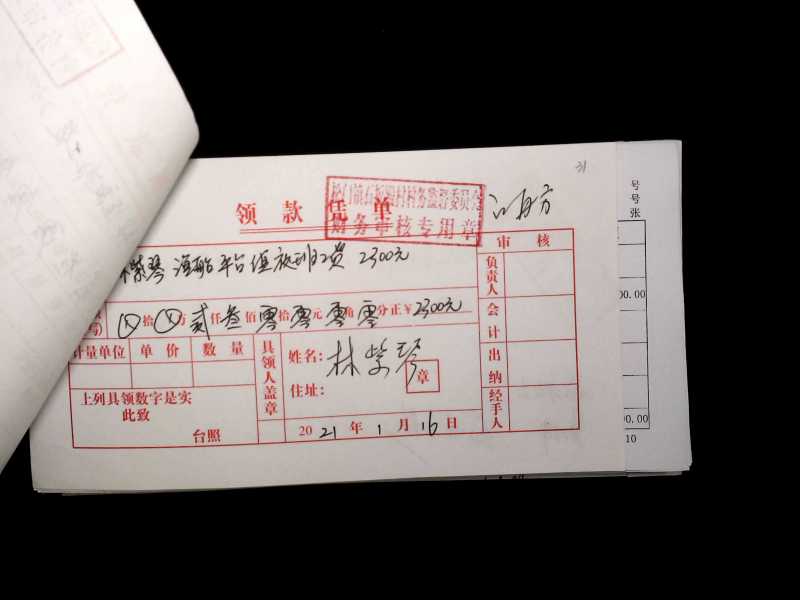 31
领款凭单
财务审核专用章
紫琴渔船平台值夜班工资 2300元
⊗拾⊗万贰仟叁佰零拾零元零角零分正￥2300元
计量单位 单价 数量
具领人盖章
姓名：林紫琴
住址：
章
上列具领数字是实
此致
台照
2021年1月16日
审核
负责人
会计
出纳
经手人
号
号
张
00.00
00.00
10